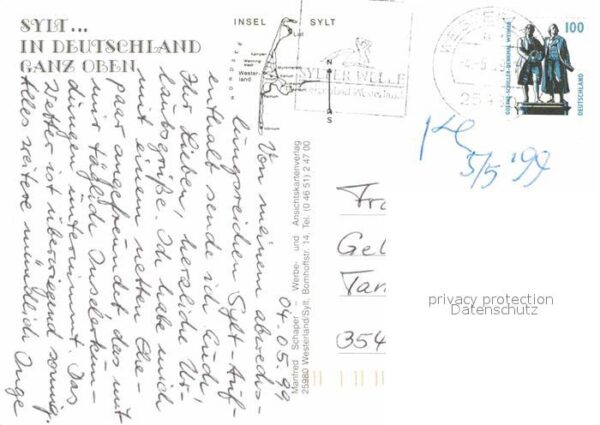 SYLT...
IN DEUTSCHLAND
GANZ OBEN.
INSEL SYLT
List
Kampen
Westerland
SYLTER WELLE
100
GOETHE-SCHILLER-DENKMAL WEIMAR
DEUTSCHLAND
5/5 '99
04.05.99
Von meinem abwechs-
lungsreichen Sylt-Auf-
enthalt sende ich Euch,
Ihr Lieben, herzliche Ur-
laubsgrüße. Ich habe mich
mit einem netten Ehe-
paar angefreundet das mit
mir täglich Inselerkun-
dungen unternimmt. Das
Wetter ist überwiegend sonnig.
Alles weitere mündlich Inge
Manfred Schaper - Werbe- und Ansichtskartenverlag
25980 Westerland/Sylt, Bomhoffstr. 14, Tel. (0 46 51) 2 47 00
Fra
Gel
Tan
354
privacy protection
Datenschutz